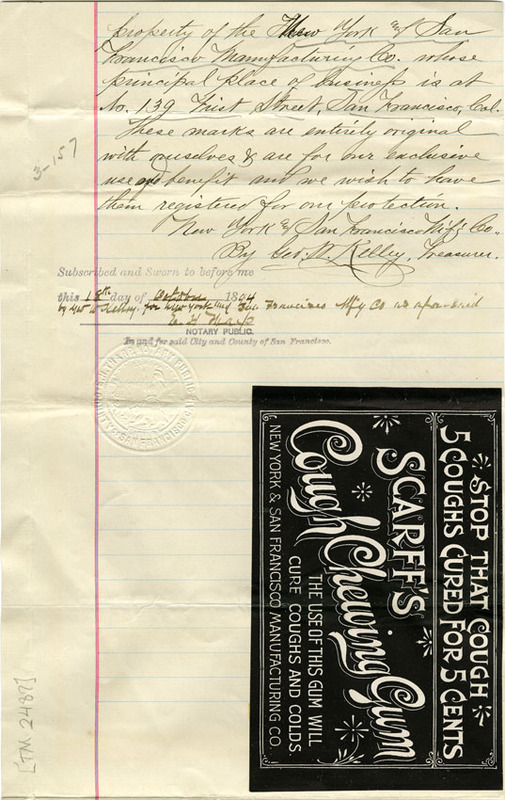 property of the New York & San
Francisco Manufacturing Co. whose
principal place of business is at
No. 139 First Street, San Francisco, Cal.
These marks are entirely original
with ourselves & are for our exclusive
use and benefit and we wish to have
them registered for our protection.
New York & San Francisco Mf'g Co.
By Geo. W. Kelley, Treasurer.
3-157
Subscribed and Sworn to before me
this 18th day of October 1894
by Geo W Kelley, for New York and San Francisco Mfg Co as aforesaid
E H Tharp
NOTARY PUBLIC.
In and for said City and County of San Francisco.
E. H. THARP, NOTARY PUBLIC
COUNTY OF SAN FRANCISCO
STOP THAT COUGH
5 COUGHS CURED FOR 5 CENTS
SCARFF'S
Cough Chewing Gum
THE USE OF THIS GUM WILL
CURE COUGHS AND COLDS.
NEW YORK & SAN FRANCISCO MANUFACTURING CO.
[TM 2482]